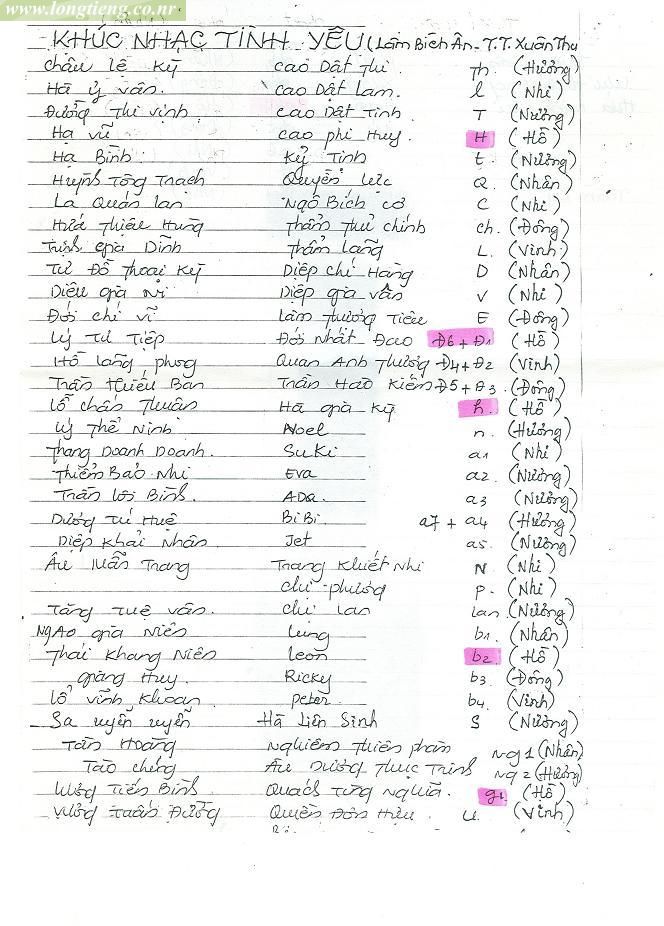 www.longtieng.co.nr
KHÚC NHẠC TÌNH YÊU (Lâm Bích Ân - T.T. Xuân Thu
Châu Lệ Kỳ Cao Dật Thi. Th. (Hường)
Hà Ý Vân. Cao Dật Lam. l (Nhi)
Đường Thi Vịnh Cao Dật Tinh T (Nương)
Hạ Vũ Cao Phi Huy. H (Hồ)
Hạ Bình Kỷ Tinh t. (Nương)
Huỳnh Tông Trạch Quyền Lực Q. (Nhân)
La Quán Lan Ngô Bích Cơ C (Nhi)
Hứa Thiệu Hùng Thẩm Thủ Chính ch. (Đông)
Trịnh Gia Dĩnh Thẩm Lãng L. (Vinh)
Từ Đỗ Thoại Kỳ Diệp Chí Hằng D (Nhân)
Diêu Gia Ni Diệp Gia Vân V (Nhi)
Đới Chí Vĩ Lâm Thương Tiêu E (Đông)
Lý Tư Tiệp Đới Nhất Đao Đ6 + Đ1 (Hồ)
Hồ Lãng Phong Quan Anh Thương Đ4 + Đ2 (Vinh)
Trần Thiếu Ban Trần Hào Kiếm Đ5 + Đ3. (Đông)
Lỗ Chấn Thuận Hà Gia Kỳ h. (Hồ)
Lý Thể Ninh Noel n. (Hường)
Thang Doanh Doanh. Suki a1 (Nhi)
Thiểm Bảo Nhi Eva a2. (Nương)
Trần Lôi Bình. Ada. a3 (Nương)
Dương Tú Huệ BiBi. a7 + a4 (Hường)
Diệp Khải Nhân. Jet a5. (Nương)
Âu Tuấn Trang Trang Khiết Nhi N (Nhi)
Chị Phương p. (Nhi)
Tăng Tuệ Vân. Chị Lan lan (Nương)
Ngao Gia Niên Lung b1 (Nhân)
Thái Khang Niên Leon b2. (Hồ)
Giang Huy. Ricky b3. (Đông)
Lỗ Vĩnh Khoan. Peter. b4. (Vinh)
Sa Uyển Uyển Hà Liên Sinh S (Nương)
Tân Hoàng Nghiêm Thiên Phàm Ng1 (Nhân)
Tào Chúng Âu Dương Thục Trinh Ng2 (Hường)
Lương Tiến Bình. Quách Tùng Nghĩa. g1. (Hồ)
Vương Tuấn Đường Quyền Đôn Hậu u. (Vinh)